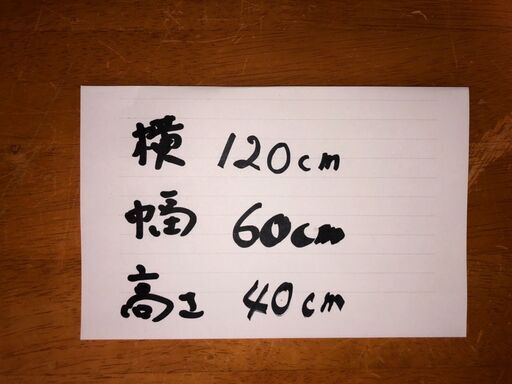 横 120cm
幅 60cm
高さ 40cm